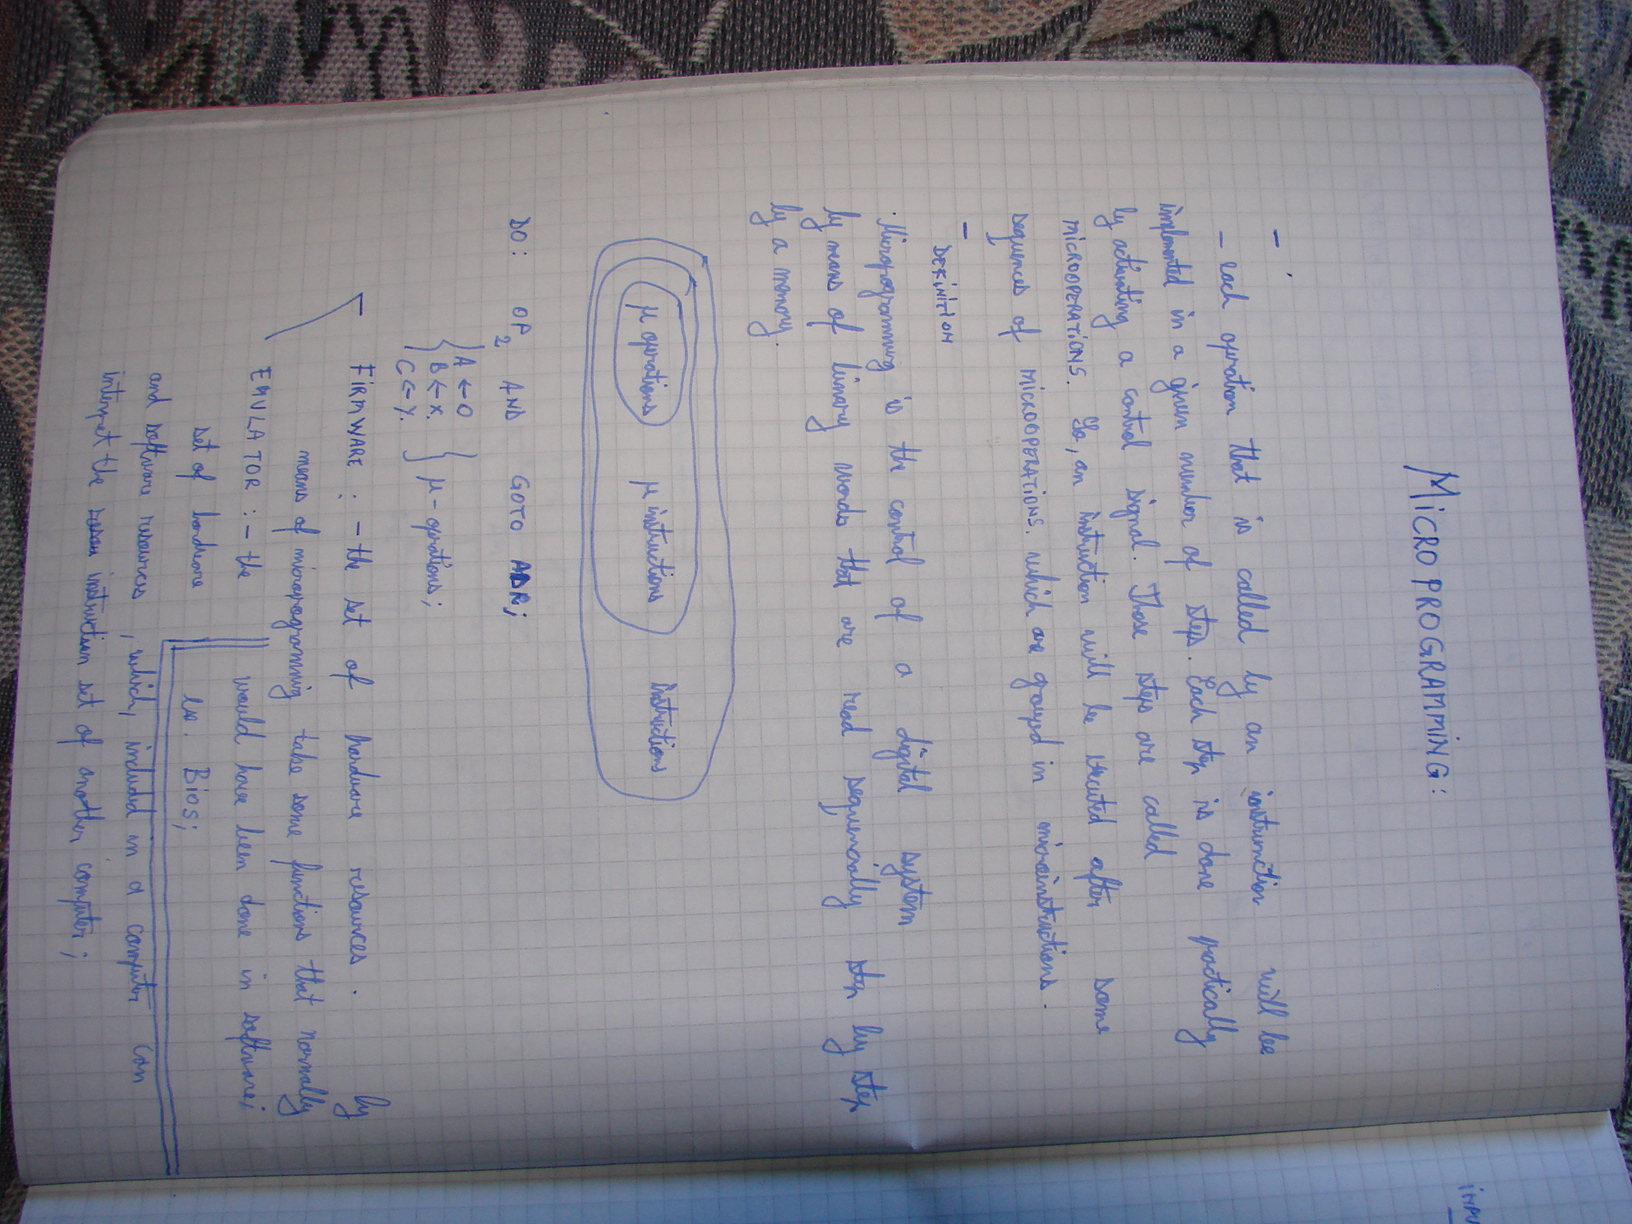 MICROPROGRAMMING:
- each operation that is called by an instruction will be
implemented in a given number of steps. Each step is done practically
by activating a control signal. Those steps are called
MICROOPERATIONS. So, an instruction will be executed after some
sequences of MICROOPERATIONS. which are grouped in microinstructions.
- DEFINITION
Microprogramming is the control of a digital system
by means of binary words that are read sequentially step by step
by a memory.
μ operations μ instructions instructions
DO: OP2 AND GOTO ADR;
{ A ← 0
B ← X.
C ← Y. } μ-operations;
FIRMWARE: - the set of hardware resources. by
means of microprogramming take some functions that normally
would have been done in software;
ex. BIOS;
EMULATOR: - the
set of hardware
and software resources, which, included in a computer can
interpret the instruction set of another computer;
IMPL